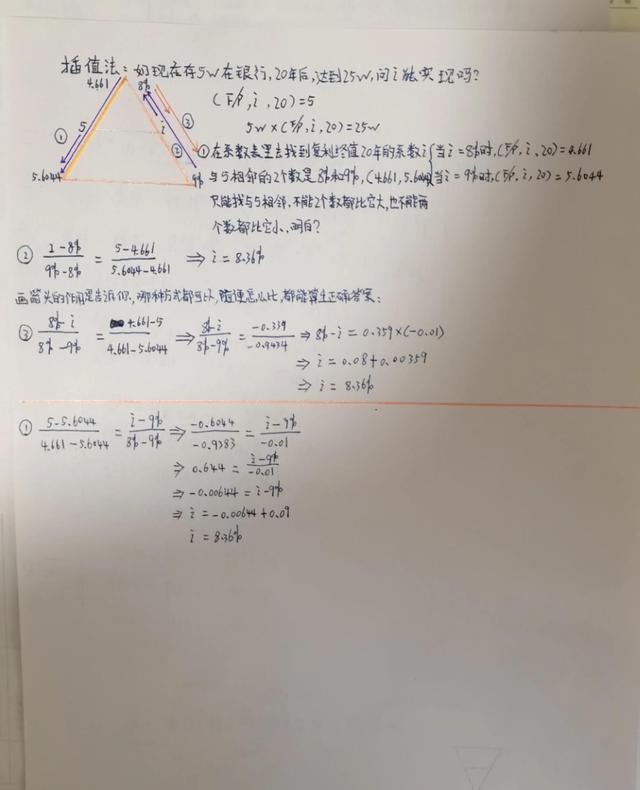 插值法：如现在存5w在银行，20年后，达到25w，问i能实现吗？
4.661 8%
(F/P, i, 20) = 5
5w×(F/P, i, 20) = 25w
① 5 i ② ③
5.6044 9%
①在系数表里去找到复利终值20年的系数 { 当i=8%时，(F/P, i, 20) = 4.661
与5相邻的2个数是8%和9%，(4.661, 5.6044) 当i=9%时，(F/P, i, 20) = 5.6044
只能找与5相邻，不能2个数都比它大，也不能两
个数都比它小，明白？
② (i-8%)/(9%-8%) = (5-4.661)/(5.6044-4.661) ⇒ i = 8.36%
画箭头的作用是告诉你，哪种方式都可以，随便怎么比，都能算出正确答案：
③ (8%-i)/(8%-9%) = (4.661-5)/(4.661-5.6044) ⇒ (8%-i)/(8%-9%) = (-0.339)/(-0.9434) ⇒ 8%-i = 0.359×(-0.01)
⇒ i = 0.08+0.00359
⇒ i = 8.36%
① (5-5.6044)/(4.661-5.6044) = (i-9%)/(8%-9%) ⇒ (-0.6044)/(-0.9383) = (i-9%)/(-0.01)
⇒ 0.644 = (i-9%)/(-0.01)
⇒ -0.00644 = i-9%
⇒ i = -0.00644+0.09
i = 8.36%